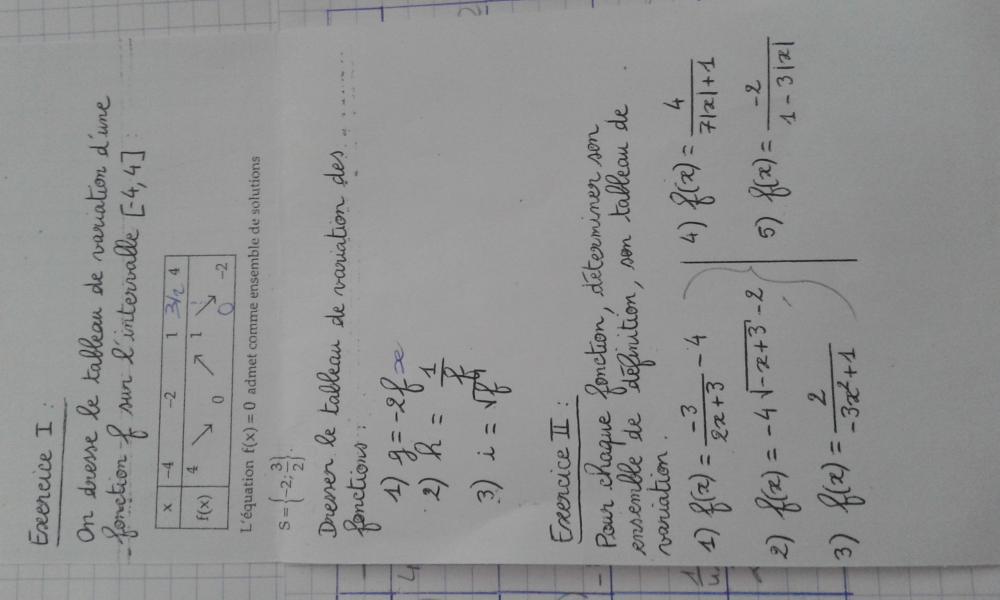 Exercice I :
On dresse le tableau de variation d'une
fonction f sur l'intervalle [-4, 4] :
x -4 -2 1 3/2 4
f(x) 4 ↘ 0 ↗ 1 ↘ 0 -2
L'équation f(x) = 0 admet comme ensemble de solutions
S = {-2; 3/2}.
Dresser le tableau de variation des
fonctions :
1) g = -2f x
2) h = 1/f
3) i = √f
Exercice II :
Pour chaque fonction, déterminer son
ensemble de définition, son tableau de
variation.
1) f(x) = -3/(2x+3) - 4
2) f(x) = -4√(-x+3) - 2
3) f(x) = 2/(-3x²+1)
4) f(x) = 4/(7|x|+1)
5) f(x) = -2/(1-3|x|)